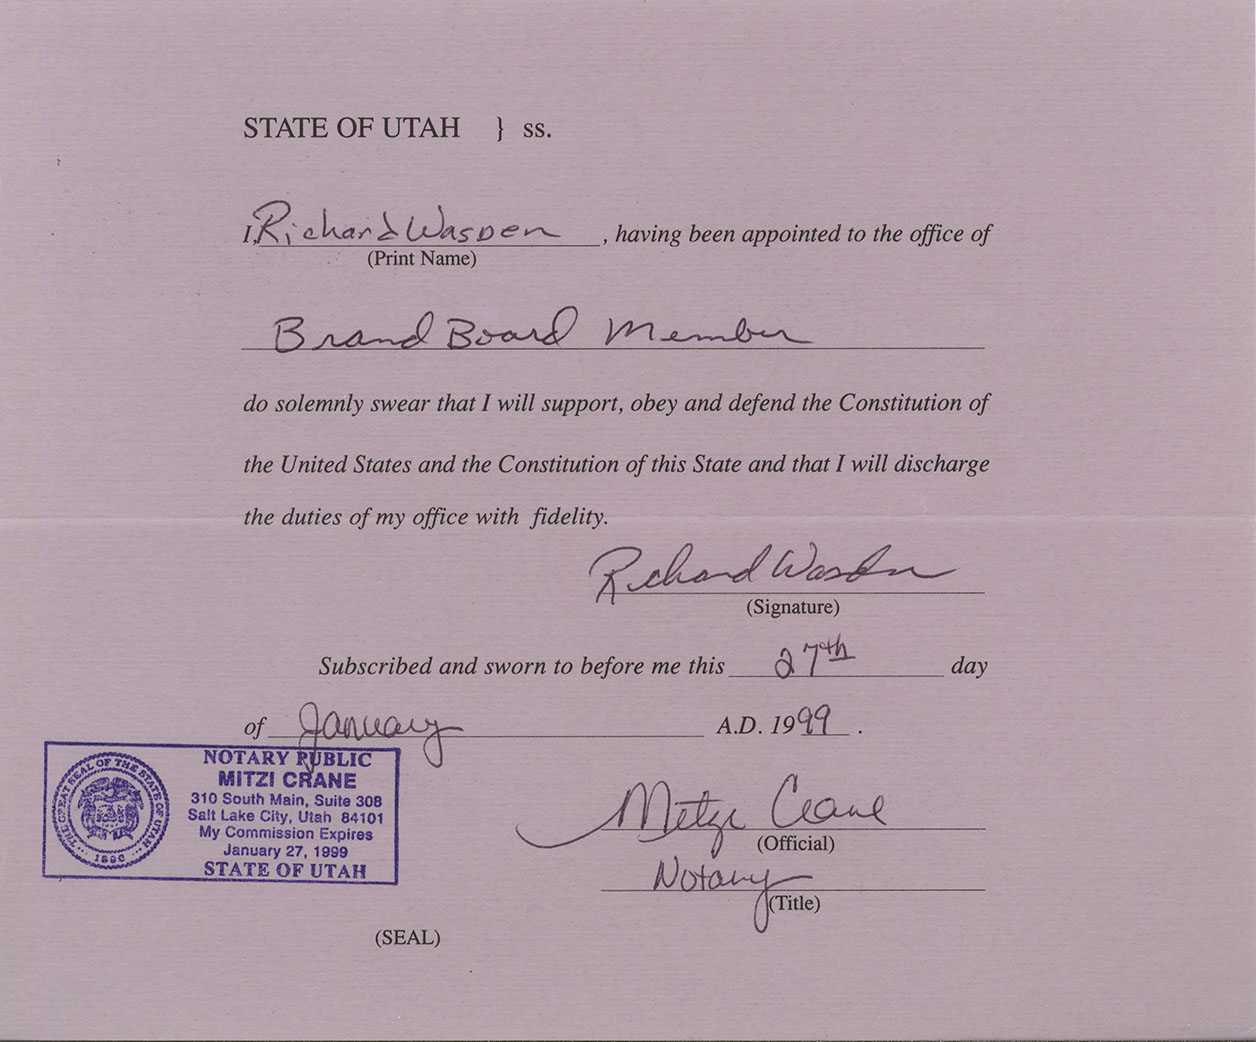 STATE OF UTAH } ss.
I, Richard Wasden, having been appointed to the office of
(Print Name)
Brand Board Member
do solemnly swear that I will support, obey and defend the Constitution of
the United States and the Constitution of this State and that I will discharge
the duties of my office with fidelity.
Richard Wasden
(Signature)
Subscribed and sworn to before me this 27th day
of January A.D. 1999.
NOTARY PUBLIC
MITZI CRANE
310 South Main, Suite 308
Salt Lake City, Utah 84101
My Commission Expires
January 27, 1999
STATE OF UTAH
THE GREAT SEAL OF THE STATE OF UTAH
1896
Mitzi Crane
(Official)
Notary
(Title)
(SEAL)